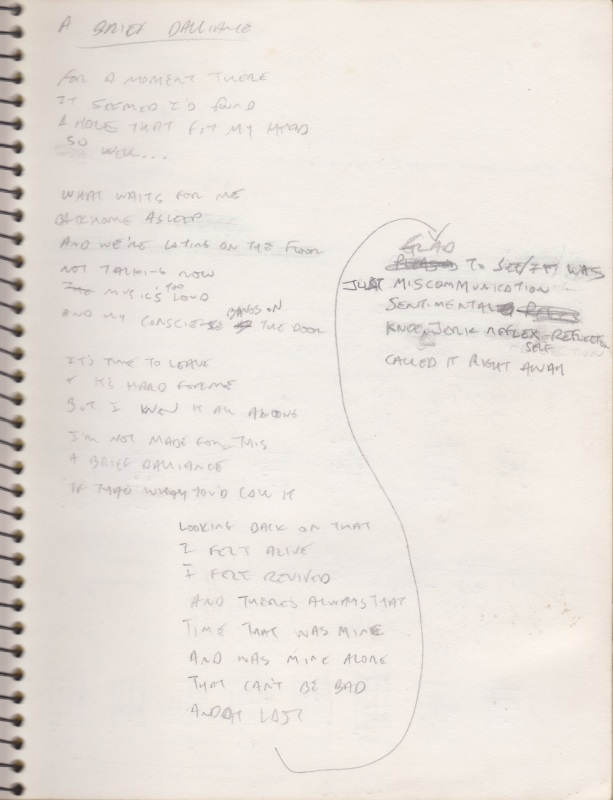 A BRIEF DALLIANCE
FOR A MOMENT THERE
IT SEEMED I'D FOUND
A HOLE THAT FIT MY HEAD
SO WELL...
WHAT WAITS FOR ME
BACK HOME ASLEEP
AND WE'RE LAYING ON THE FLOOR
NOT TALKING NOW
THE MUSIC'S TOO LOUD
AND MY CONSCIENCE BANGS ON THE DOOR
IT'S TIME TO LEAVE
& IT'S HARD FOR ME
BUT I KNEW IT ALL ALONG
I'M NOT MADE FOR THIS
A BRIEF DALLIANCE
IF THAT'S WHAT YOU'D CALL IT
LOOKING BACK ON THAT
I FELT ALIVE
I FELT REVIVED
AND THERE'S ALWAYS THAT
TIME THAT WAS MINE
AND WAS MINE ALONE
THAT CAN'T BE BAD
AND AT LAST
GLAD
PLEASED TO SEE/IT WAS
JUST MISCOMMUNICATION
SENTIMENTAL
KNEE JERK REFLEX REFLECTION
SELF
CALLED IT RIGHT AWAY